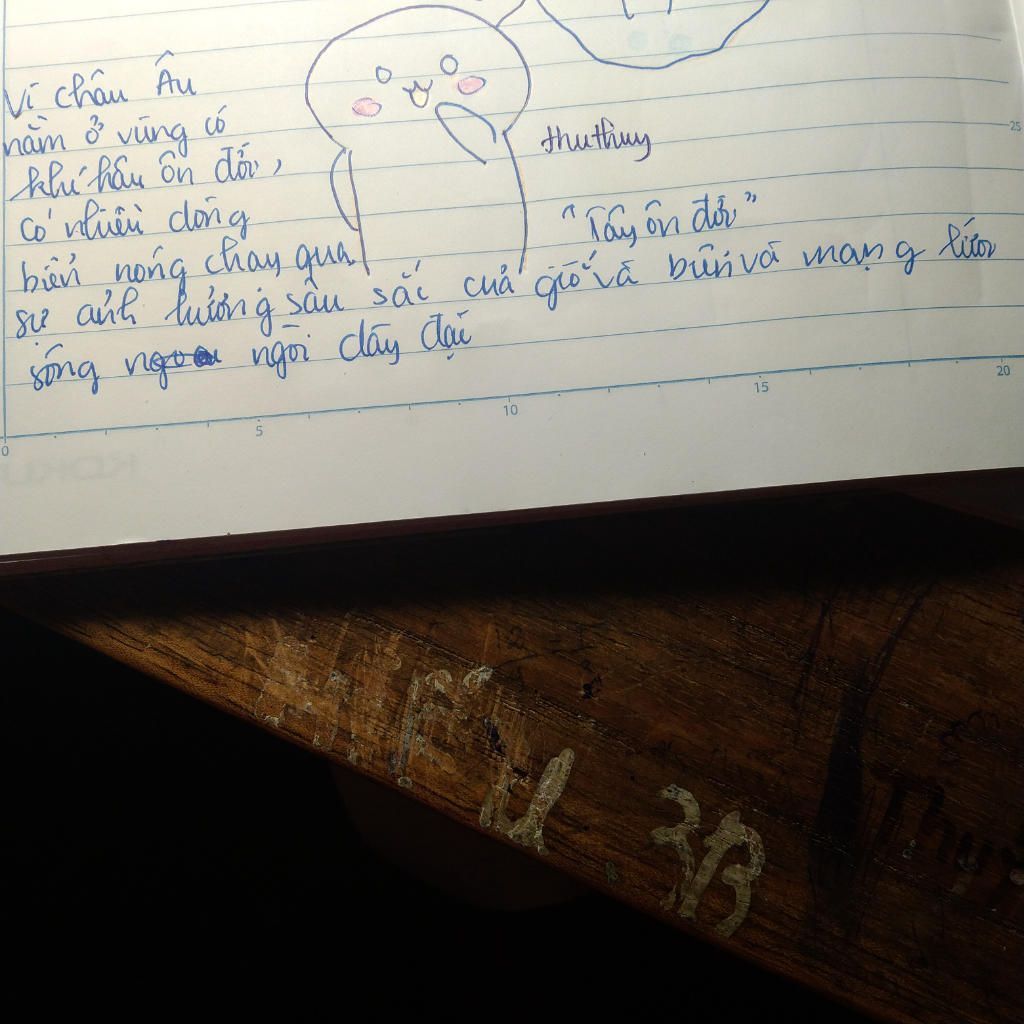 Vì châu Âu
nằm ở vùng có
khí hậu ôn đới,
có nhiều dòng
biển nóng chay qua
thuthuy
"Tây ôn đới"
sự ảnh hưởng sâu sắc của gió và biển và mạng lưới
sông ngòi dày đặc
0 5 10 15 20
25
3B